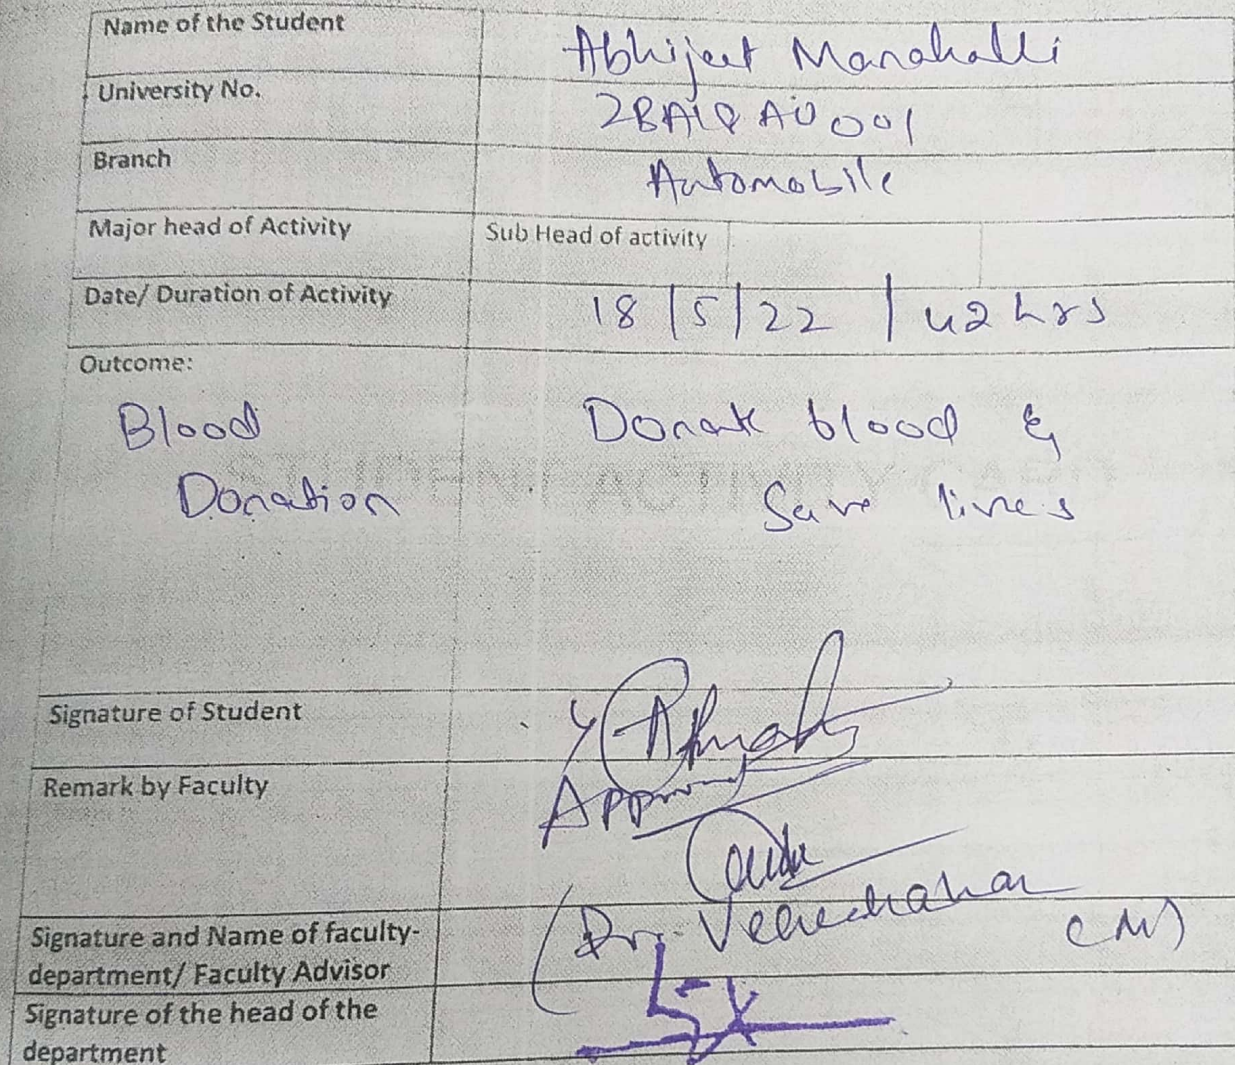 Name of the Student Abhijeet Manahalli
University No. 2BA18AU001
Branch Automobile
Major head of Activity Sub Head of activity
Date/ Duration of Activity 18/5/22 / 42 hrs
Outcome:
Blood Donate blood &
Donation Save lives
Signature of Student
Remark by Faculty
Signature and Name of faculty- Dr.
department/ Faculty Advisor
Signature of the head of the
department